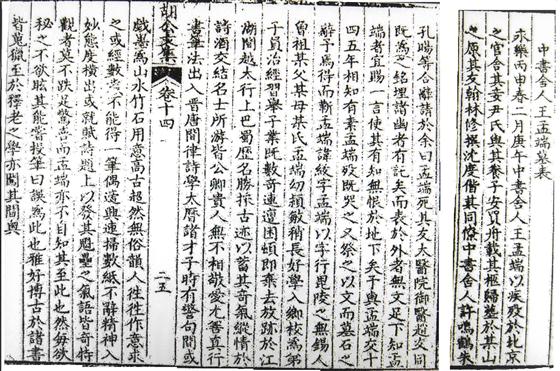 中書舍人王孟端墓表
永樂丙申春二月庚午中書舍人王孟端以疾歿於北京
之官舍其妾尹氏與其養子安貞舟載其柩歸塟於其山
之原其友翰林修撰沈度偕其同僚中書舍人許鳴鶴朱
孔暘等合辭請於余曰孟端死其友太醫院御醫趙友同
既爲之銘埋諸幽者有記矣而表於外者無文足下知孟
端者宜賜一言使其有知無恨於地下矣予與孟端交十
四五年相知有素孟端歿既哭之又祭之以文而墓石之
辭予烏得而靳孟端諱紱字孟端以字行毘陵之無錫人
曾祖某父某母某氏孟端幼穎敏稍長好學入鄉校爲弟
子員治經習舉子業既數奇連遭困頓即棄去放跡於江
湖間越太行上巴蜀歷名勝探古述以蓄其奇氣縱情於
詩酒交結名士所游皆公卿貴人無不相敬愛尤善真行
書筆法出入晉唐間律詩學大曆諸才子時有警句間或
胡公文集 卷十四 二五
戲墨爲山水竹石用意高古超然無俗韻人徃徃作意求
之或經數歲不能得一筆偶遇興連掃數紙不辭精神入
妙態度橫出或就賦詩題上以發其魁壘之氣語皆奇特
觀者莫不跌足驚嘆而孟端亦不自知其至此也然每欲
秘之不欲眩其能嘗投筆曰誤爲此也雅好博古於諸書
皆蒐獵至於釋老之學亦闖其閫奧